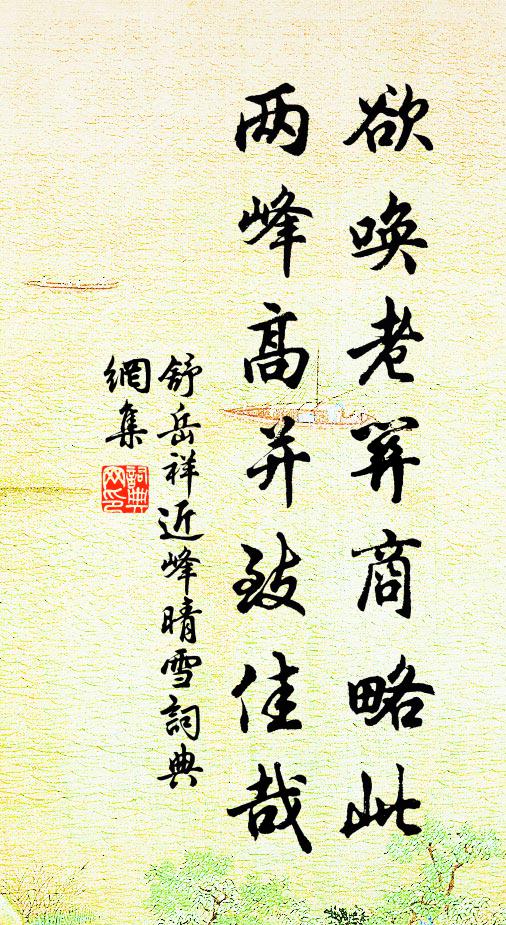 欲唤老笄商略此
两峰高并致佳哉
舒岳祥近峰晴雪詞典
網集
詞典網印